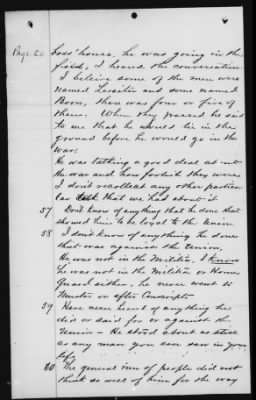 Page 20
Loss' house, he was going in the
field, I heard the conversation.
I beleive some of the men were
named and some named
Boon, there was four or five of
them. When they passed he said
to me that he would lie in the
ground before he would go in the
war:
He was talking a good deal about
the war and how foolish they were
I don't recollect any other particu
lar talk that we had about it
57 Don't know of anything that he done that
showed him to be loyal to the Union
58 I don't know of anything he done
that was against the Union,
He was not in the Militia, I know
he was not in the Militia or Home
Guard either, he never went to
Muster or after Conscripts
59 Have never heard of anything he
did or said for or against the
Union - He stood about as still
as any man you ever saw in your
life
60 The general run of people did not
think so well of him for the way